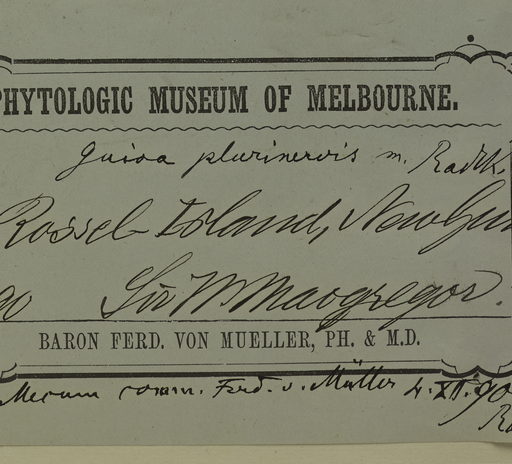 PHYTOLOGIC MUSEUM OF MELBOURNE.
Guioa plurinervis m. Radlk.
Rossel Island, New Gui
90 Sir W Macgregor.
BARON FERD. VON MUELLER, PH. & M.D.
Mecum comm. Ferd. v. Müller 4. XII. 90
Ra